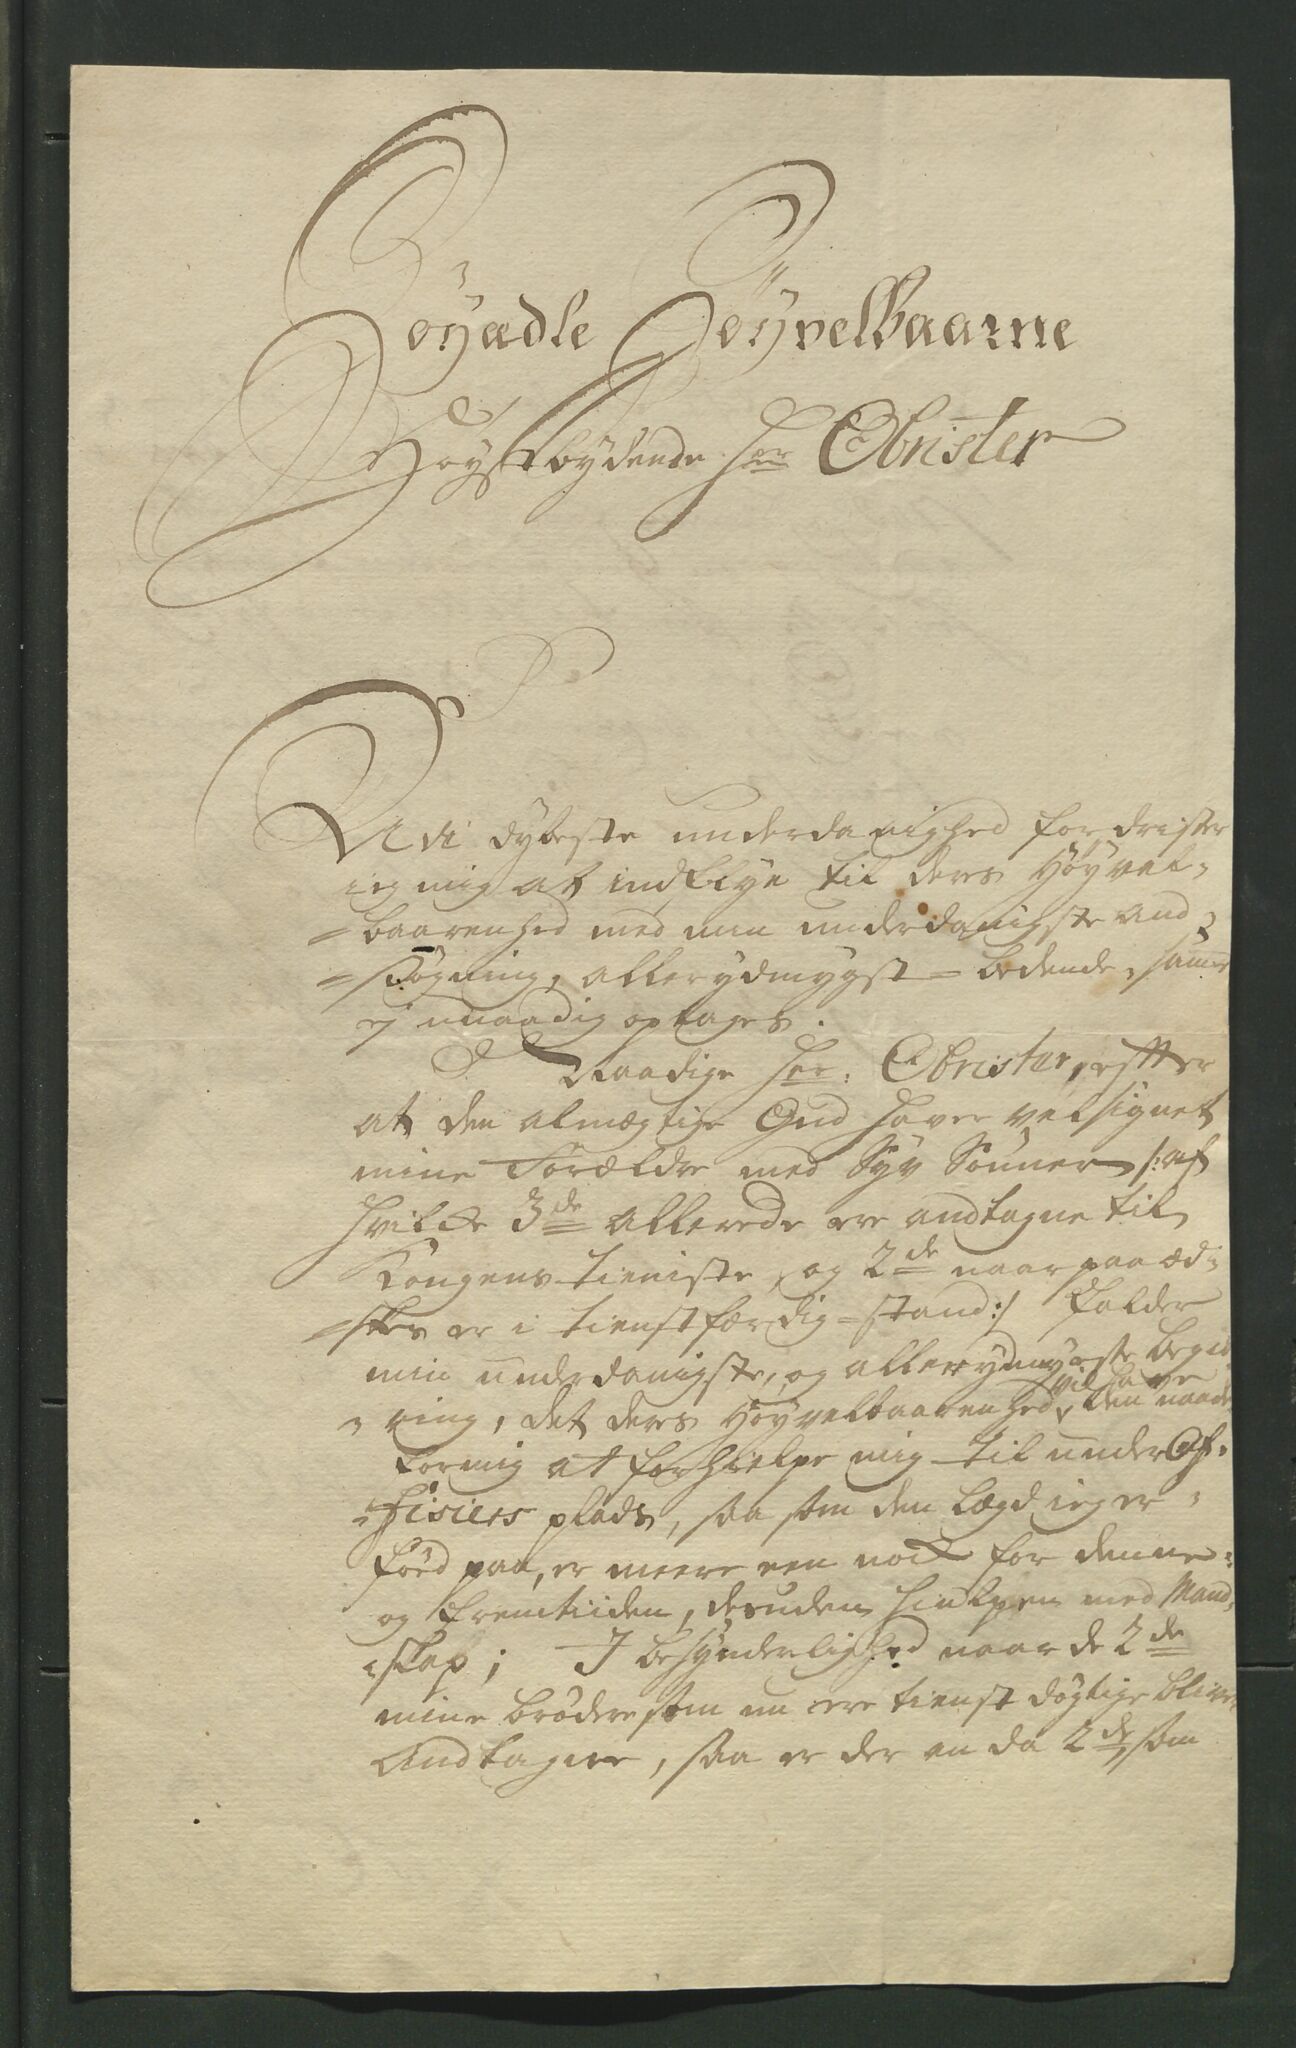 Höyædle Höyvelbaarne
Höystbydende Herr Obrister
Udi dybeste underdanighed fordrister
ieg mig at indflye til deres Höyvel-
=baarenhed med min underdanigste and
=søgning, allerydmygst = bedende, samme
ej unaadig optages.
Naadige Her: Obrister, effter
at den almægtige Gud haver velsignet
mine Forældre med Syv Sönner /: af
hvilcke 3de allerede ere andtagne til
Kongens tieniste, og 2de naar paa æd-
=skes er i tienstfærdig = stand :/ falder
min underdanigste, og allerydmygste begiæ
=ring, det deres Höyvelbaarenhed vil have den naade
for mig at forhielpe mig til under Of-
=ficiers plads, saa som den lægd ieg er
föed paa, er meere een nock for denne
og fremtiiden, desuden hiulpen med Mand-
=skap; J besynderlighed naar de 2de
mine brödre som nu ere tienst dögtige bliver
Andtagne, saa er der en da 2de, som